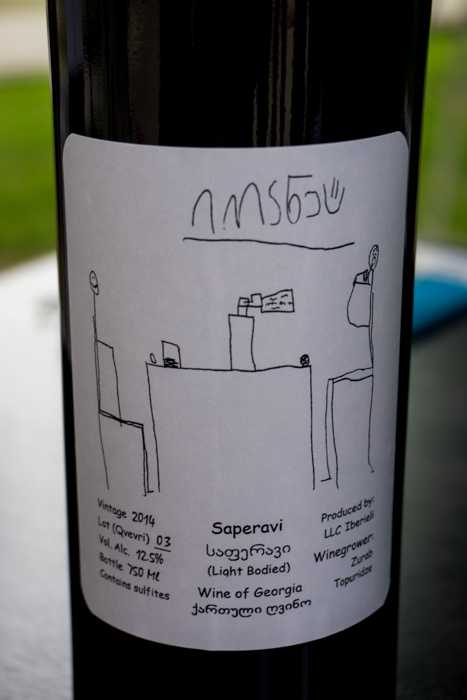 Vintage 2014
Lot (Qvevri) 03
Vol. Alc. 12.5%
Bottle 750 Ml
Contains sulfites
Saperavi
საფერავი
(Light Bodied)
Wine of Georgia
ქართული ღვინო
Produced by:
LLC Iberieli
Winegrower:
Zurab
Topuridze